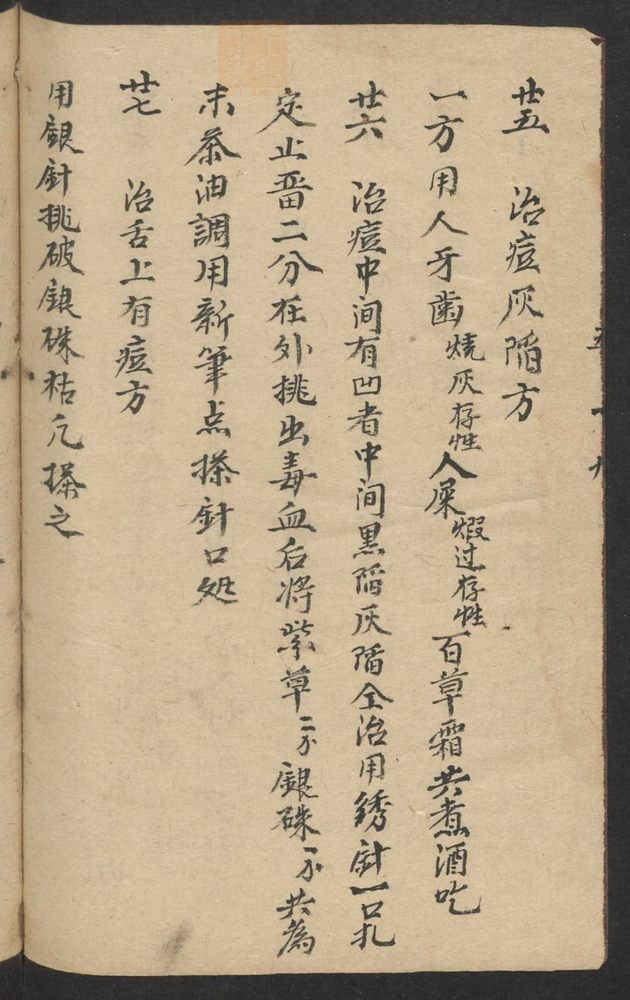 廿五　治痘灰陷方
一方用人牙齒燒灰存性人屎煆过存性百草霜共煮酒吃
廿六　治痘中间有凹者中间黑陷灰陷全治用绣針一口扎
定止畨二分在外挑出毒血后将紫草二分銀硃一分共為
末茶油調用新筆点搽針口処
廿七　治舌上有痘方
用銀針挑破銀硃枯凡搽之